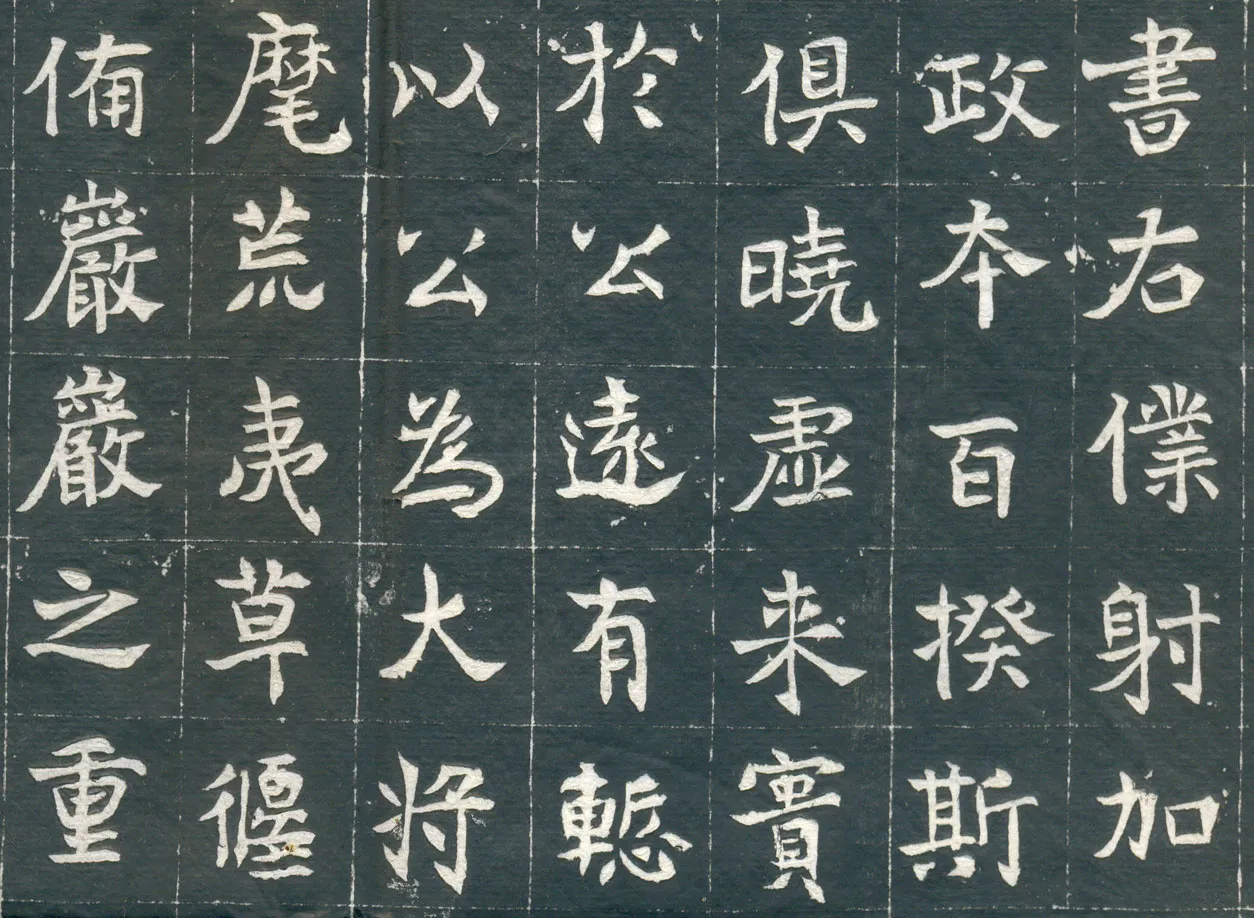 書右僕射加
政本百揆斯
俱曉虛来實
於公遠有
以公為大將
麾荒夷草偃
備巖巖之重